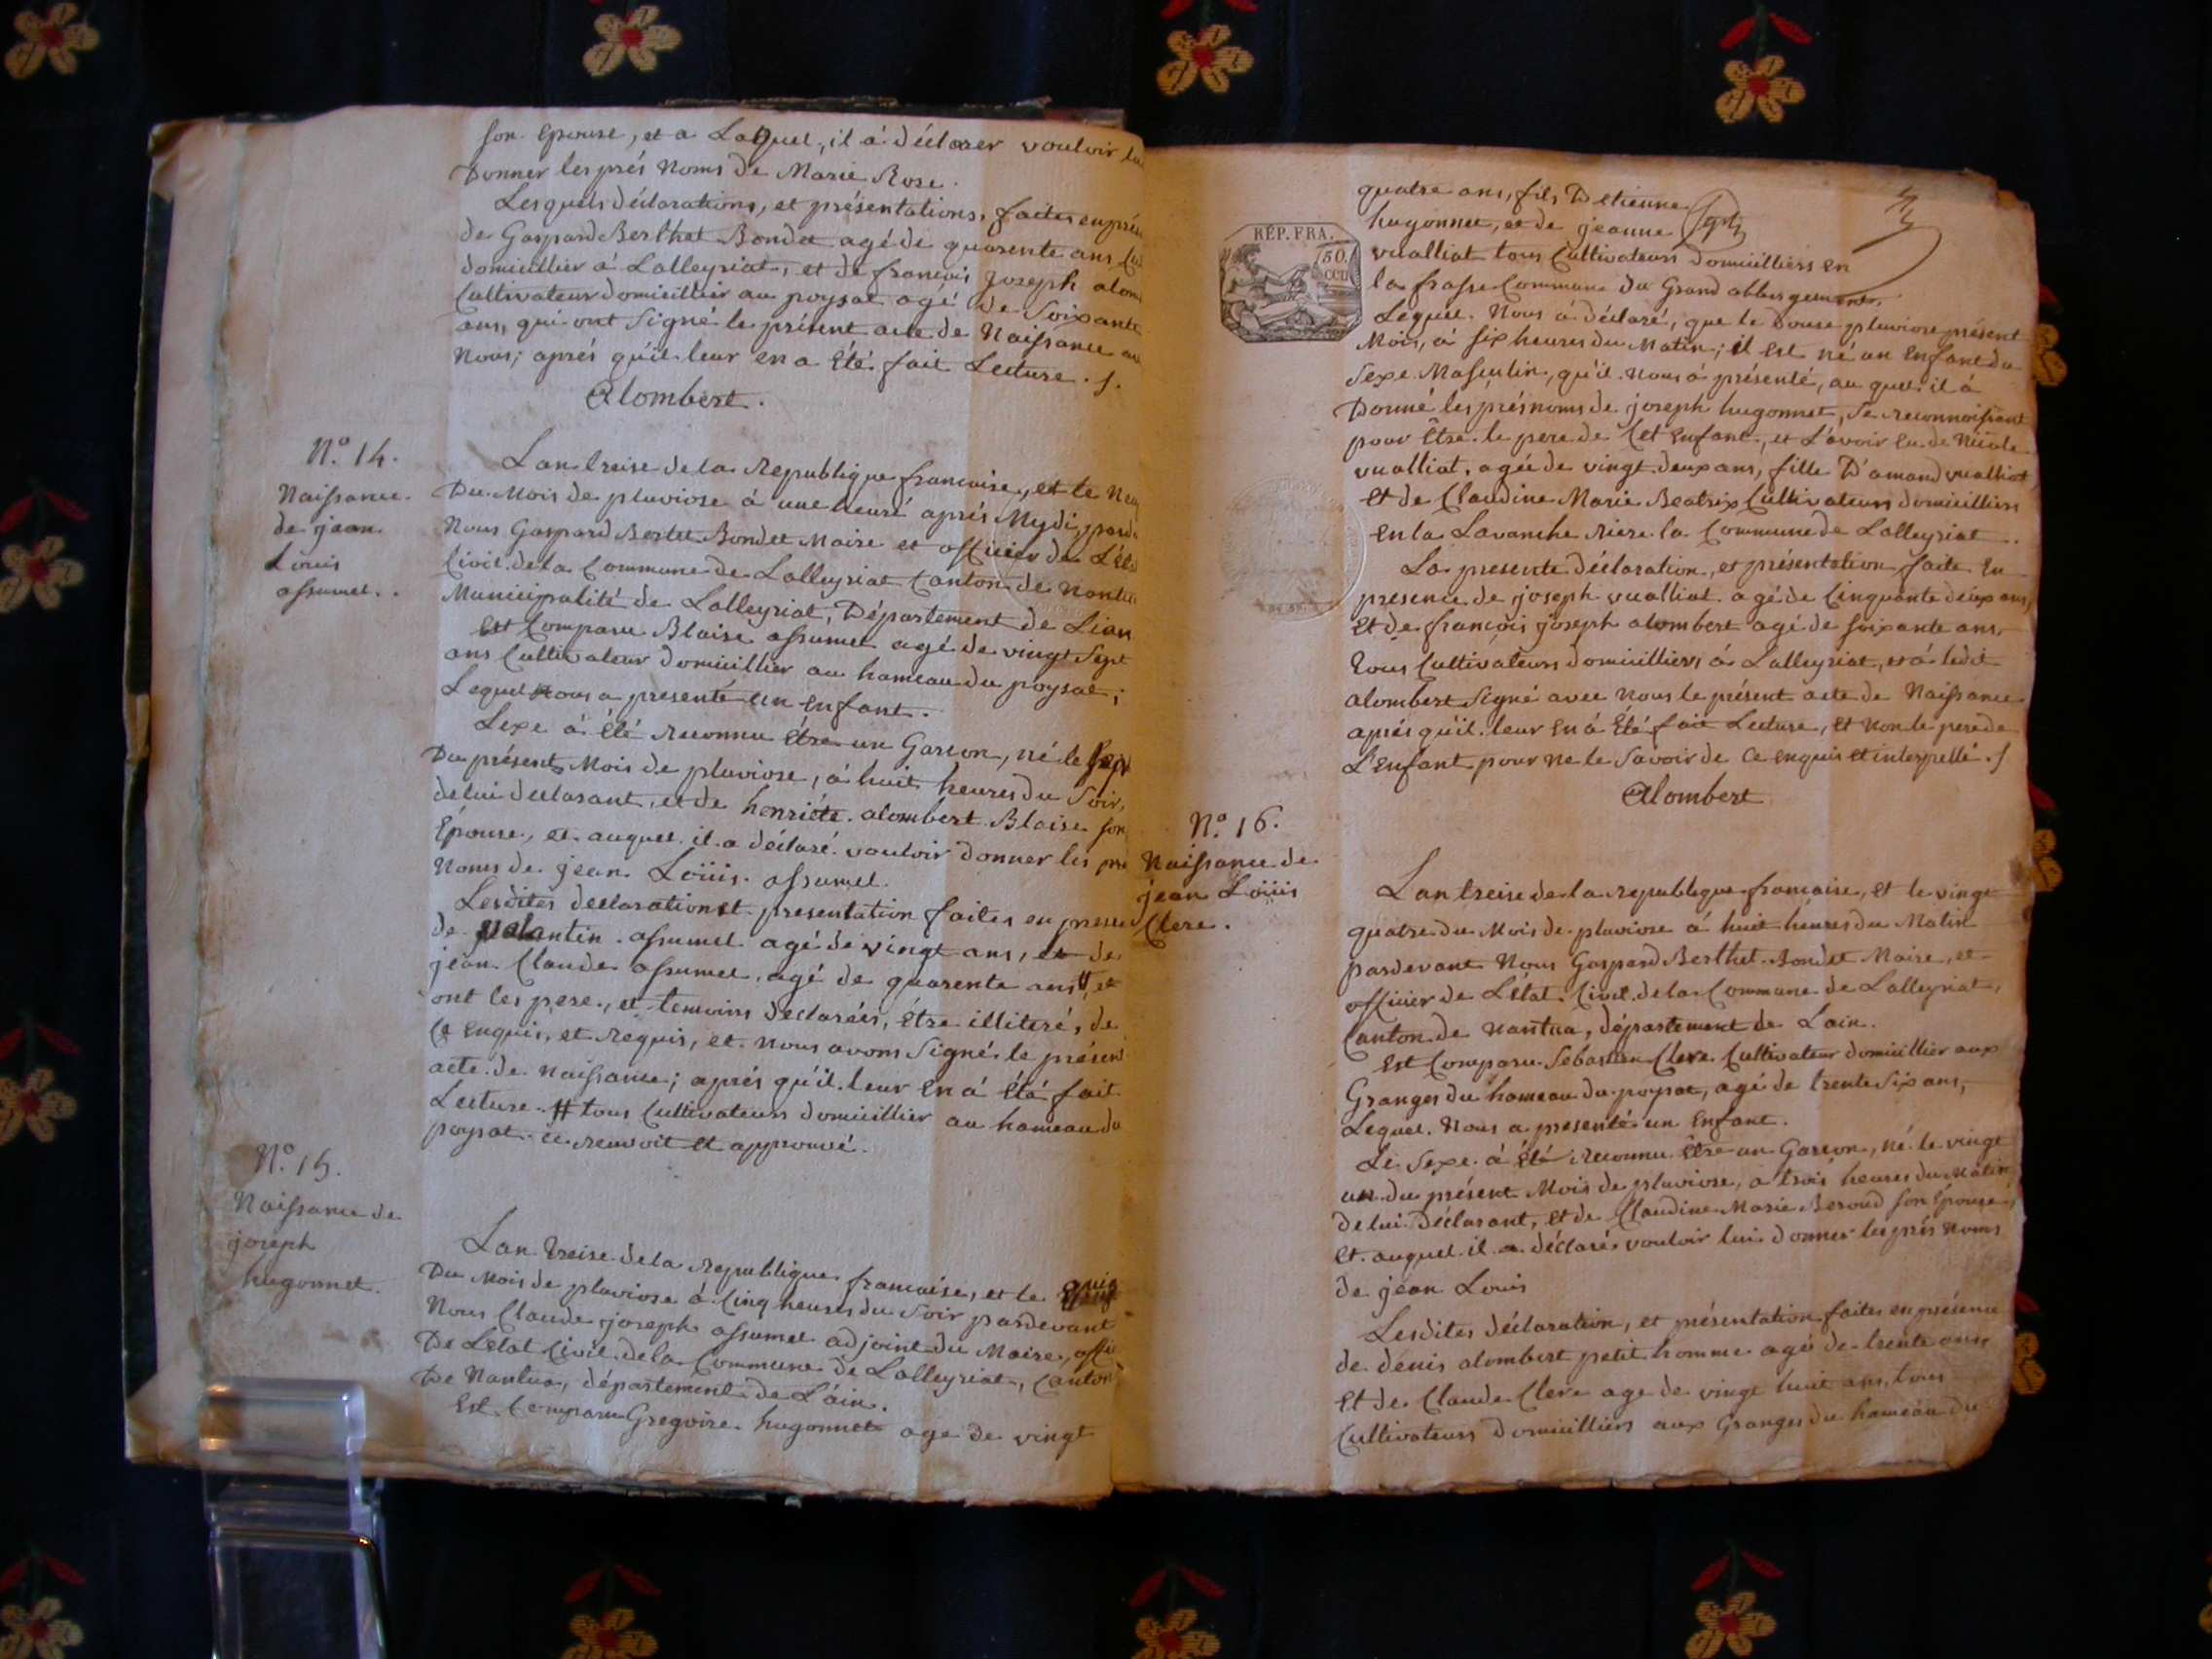 son Epouse, et a Laquel, il á déclarer vouloir
Donner les prés Noms de Marie Rose.
Lesquels déclarations, et présentations, faites en
de Gaspard Berthet Bondet agé de quarente ans
domicillier á Lalleyriat, et de francois joseph
Cultivateur domicillier au poysat agé de Soixante
ans, qui ont Signé le présent acte de Naissance
Nous; aprés qu'il leur en a Eté fait Lecture ./.
Alombert.
N.º 14.
Naissance
de jean
Louis
assumel.
Lan treise de la Republique francaise, et le
Du Mois de pluviose á une heure aprés Mydi,
Nous Gaspard Bertet Bondet Maire et officier de
Civil de la Commune de Lalleyriat Canton de
Municipalité de Lalleyriat, Département de
Est Comparu Blaise assumel agé de vingt Sept
ans Cultivateur Domicillier au hameau du poysat;
Lequel Nous a presenté un Enfant.
Sexe á Été reconnu Étre un Garcon, né le
Du présent Mois de pluviose, á huit heures du Soir,
de lui declarant, et de henriéte alombert Blaise son
Épouse, et auquel il a déclaré vouloir donner les
Noms de jean Loüis assumel.
Lesdites declaration et presentation faites en
de valantin assumel agé de vingt ans, et de
jean Claude assumel agé de quarente ans # et
ont les pere, et temoins declarés, être illiteré, de
Ce enquis, et requis, et Nous avons Signé le présent
acte de Naissance; aprés qu'il leur en á Été fait
Lecture. # tous Cultivateurs domicillier au hameau du
poysat ce renvoit et approuvé.
N.º 15.
Naissance de
joseph
hugonnet.
Lan treise de la Republique francaise, et le
Du Mois de pluviose á Cinq heures du Soir pardevant
Nous Claude joseph assumel adjoint du Maire,
De Letat Civil de la Commune de Lalleyriat, Canton
De Nantua, département de L'ain.
Est Comparu Gregoire hugonnet age de vingt
quatre ans, fils D'etienne
hugonnet, et de jeanne
vualliat tous Cultivateurs domicilliers en
la frasse Commune du Grand abbergement,
Lequel Nous á déclaré, que le Douse pluviose présent
Mois, á six heures du Matin; il est né un Enfant du
Sexe Masculin, qu'il Nous á présenté, au quel il á
Donné les présnoms de joseph hugonnet, Se reconnoissant
pour Être le pere de Cet enfant, et L'avoir eu de Nicole
vualliat, agée de vingt deux ans, fille D'amand vualliat
et de Claudine Marie Beatrix Cultivateurs domicilliers
en la Lavanche riere la Commune de Lalleyriat.
La presente déclaration, et présentation faite en
presence de joseph vualliat agé de Cinquante deux ans,
et de francois joseph alombert agé de soixante ans,
tous Cultivateurs domicilliers á Lalleyriat, et á ledit
alombert Signé avec Nous le présent acte de Naissance
aprés qu'il leur en á Été fait Lecture, et Non le pere de
L'enfant pour ne le Savoir de Ce enquis et interpellé ./
Alombert
RÉP. FRA.
50.
CCII
N.º 16.
Naissance de
jean Loüis
Clere.
Lan treise de la republique francaise, et le vingt
quatre du Mois de pluviose á huit heures du Matin
pardevant Nous Gaspard Berthet Bondet Maire, et
officier de L'état Civil de la Commune de Lalleyriat,
Canton de Nantua, département de Lain.
Est Comparu Sebastien Clere Cultivateur domicillier aux
Granges du hameau du poysat, agé de trente Six ans,
Lequel Nous a presenté un Enfant.
Le Sexe á Été Reconnu Être un Garcon, né le vingt
un du présent Mois de pluviose, a trois heures du Matin
de lui Déclarant, et de Claudine Marie Beroud son Epouse,
et auquel il a déclaré vouloir lui donner les prés Noms
de jean Louis
Lesdites déclaration, et présentation faites en présence
de denis alombert petit homme agé de trente ans,
et de Claude Clere age de vingt huit ans, tous
Cultivateurs domicilliers aux Granges du hameau du